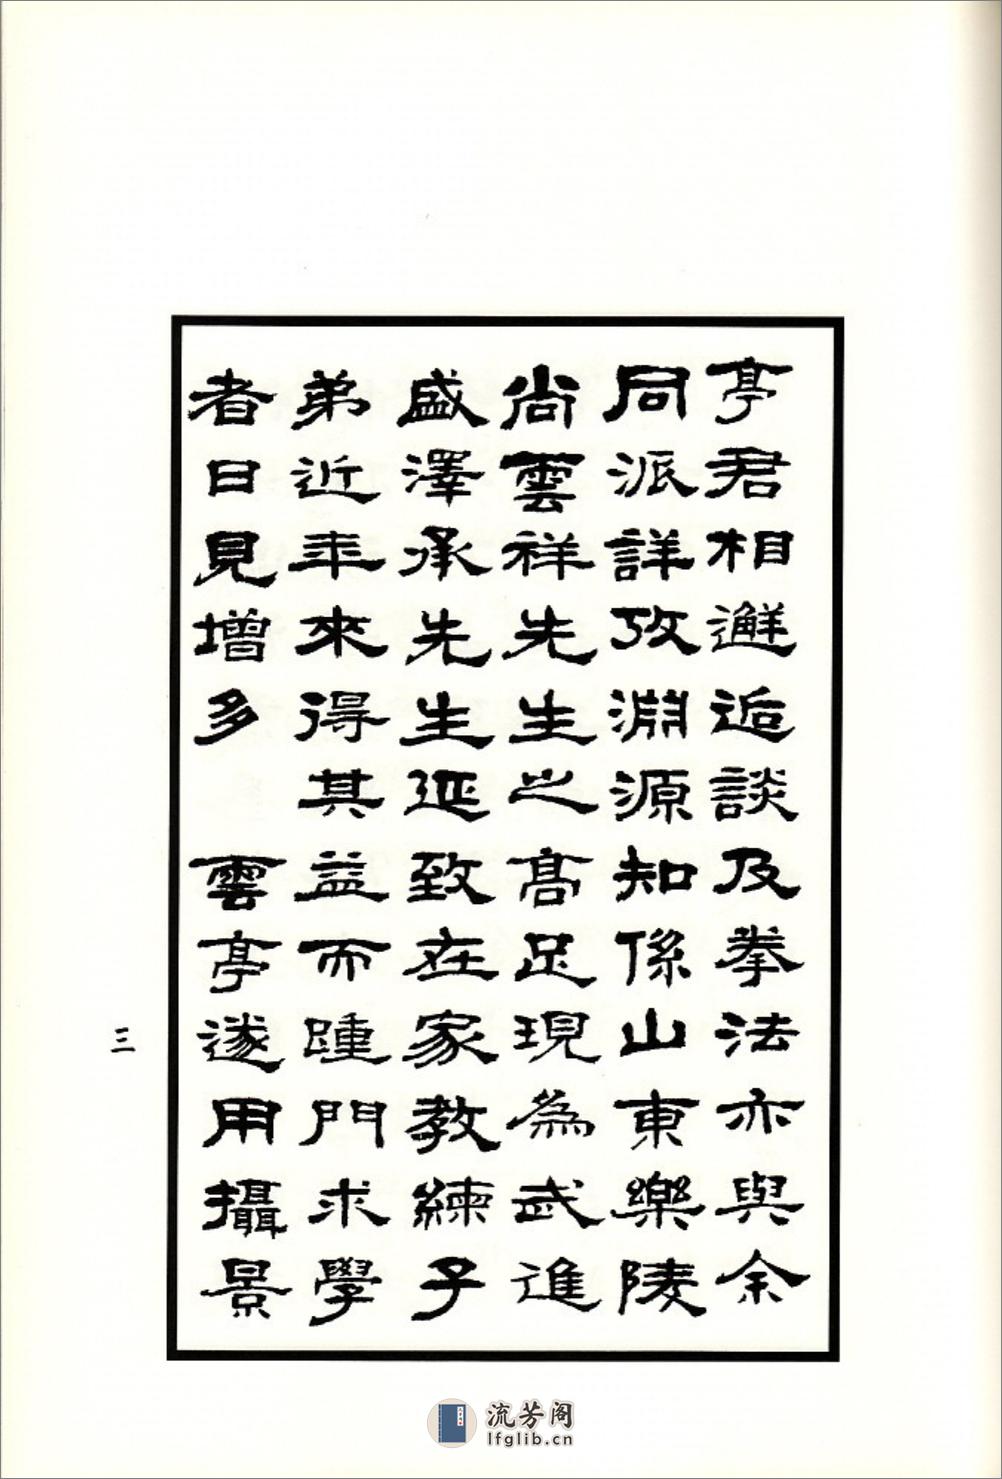 亭君相邂逅談及拳法亦與余
同派詳攷淵源知係山東樂陵
尚雲祥先生之高足現為武進
盛澤承先生延致在家教練子
弟近年來得其益而踵門求學
者日見增多　雲亭遂用攝景
三
流芳阁
lfglib.cn